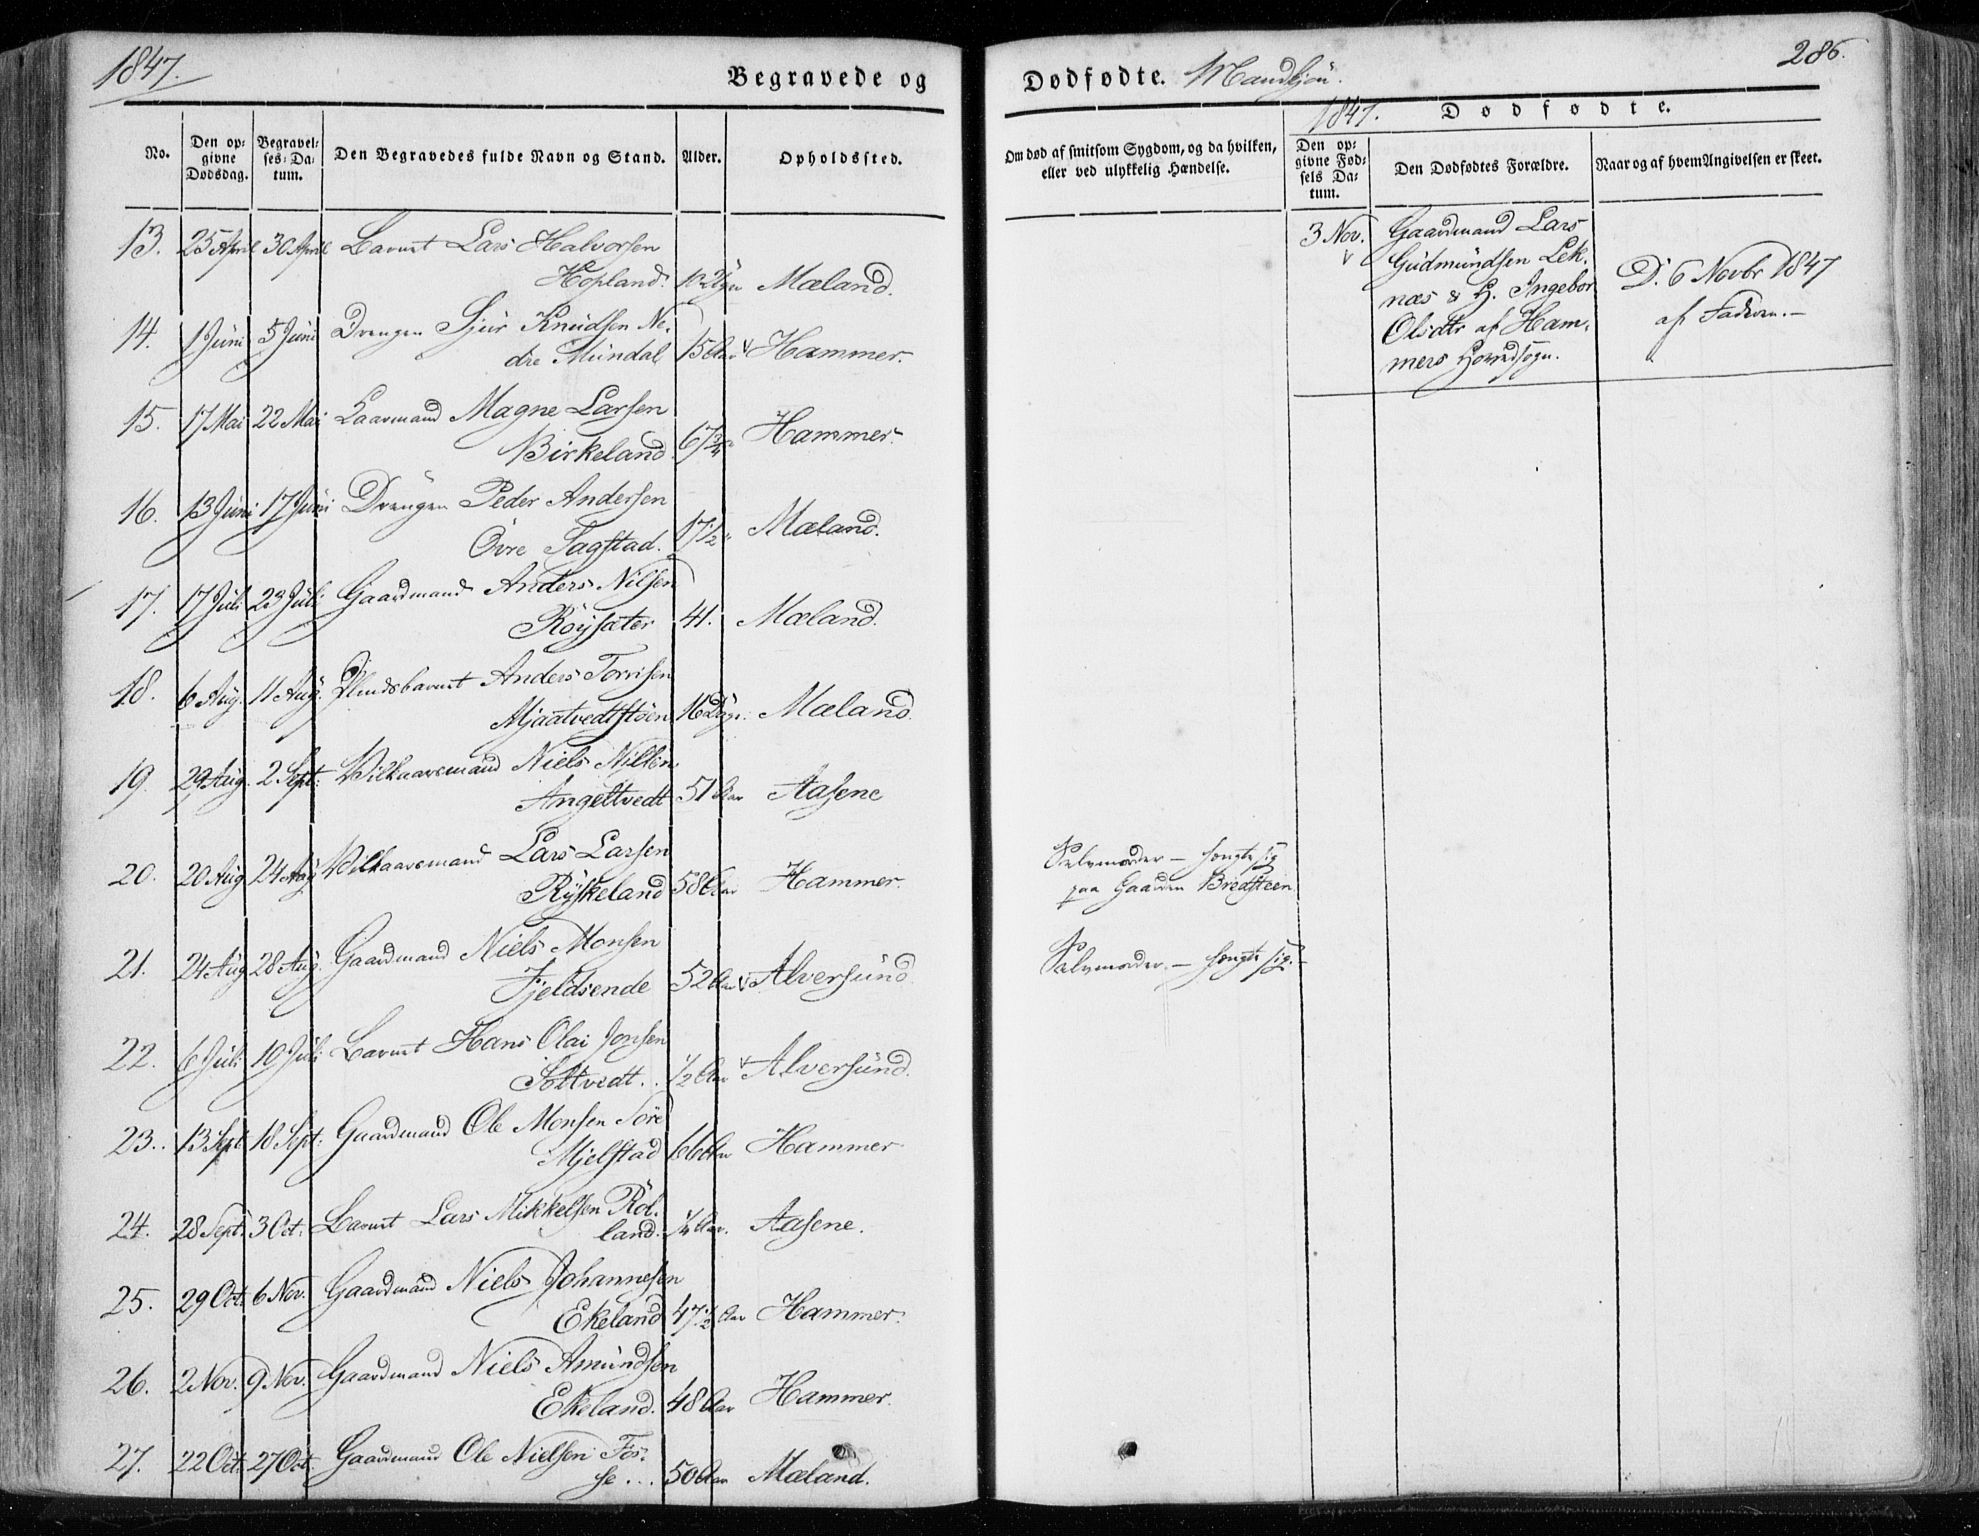 1847.
Begravede og
Dødfødte. Mandkjön.
286.
1847. Dødfødte.
No.
Den op-
givne
Dødsdag.
Begravel-
ses-Da-
tum.
Den Begravedes fulde Navn og Stand.
Alder.
Opholdssted.
Om død af smitsom Sygdom, og da hvilken,
eller ved ulykkelig Hændelse.
Den op-
givne Fød-
sels Da-
tum.
Den Dødfødtes Forældre.
Naar og af hvem Angivelsen er skeet.
13. 25 April 30 April Barnet Lars Halvorsen
Hopland. Mæland.
14. 1 Juni 5 Juni Drengen Sjur Knudsen Ne-
dre Mundal 15 Aar Hammer.
15. 17 Mai 22 Mai Gaarmand Magne Larsen
Birkeland 67 3/4 Hammer.
16. 13 Juni 17 Juni Drengen Peder Andersen
Övre Tagstad. 17 1/2 Mæland.
17. 17 Juli 23 Juli Gaardmand Anders Nilsen
Röysæter 41. Mæland.
18. 6 Aug. 11 Aug. Anders
Mjaatvedtstöen 16 Dage Mæland.
19. 29 Aug. 2 Sept. Vilkaarsmand Niels Nilsen
Angeltvedt 51 Aar Aasene
20. 20 Aug 24 Aug Vilkaarsmand Lars Larsen
Ryskeland 58 Aar Hammer.
Selvmorder - hengte sig
paa Gaarden Bredsteen.
21. 24 Aug 28 Aug. Gaardmand Niels Monsen
Fjeldsende 52 Aar Alversund
Selvmorder. - hengte sig. -
22. 6 Juli 10 Juli Barnet Hans Olai Jonsen
Soltvedt. 1/2 Aar Alversund.
23. 13 Sept 18 Sept. Gaardmand Ole Monsen Söre
Mjelstad 66 Aar Hammer
24. 28 Sept. 3 Oct. Barnet Lars Mikkelsen Röl-
land. 1/4 Aar. Aasene.
25. 29 Oct. 6 Nov. Gaardmand Niels Johannesen
Ekeland 47 1/2 Aar Hammer.
26. 2 Nov. 9 Nov. Gaardmand Niels Amundsen
Ekeland. 48 Aar Hammer.
27. 22 Oct. 27 Oct. Gaardmand Ole Nielsen Fos-
se... 50 Aar Mæland.
3 Nov.
Gaardmand Lars
Gudmundsen Lek-
næs & H. Ingebor
Olsdtr af Ham-
mers Hovedsogn.
D. 6 Novbr 1847
af Faderen. -